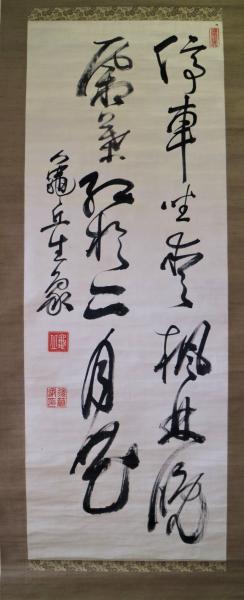 停車坐愛楓林晚
霜葉紅於二月花
丘生